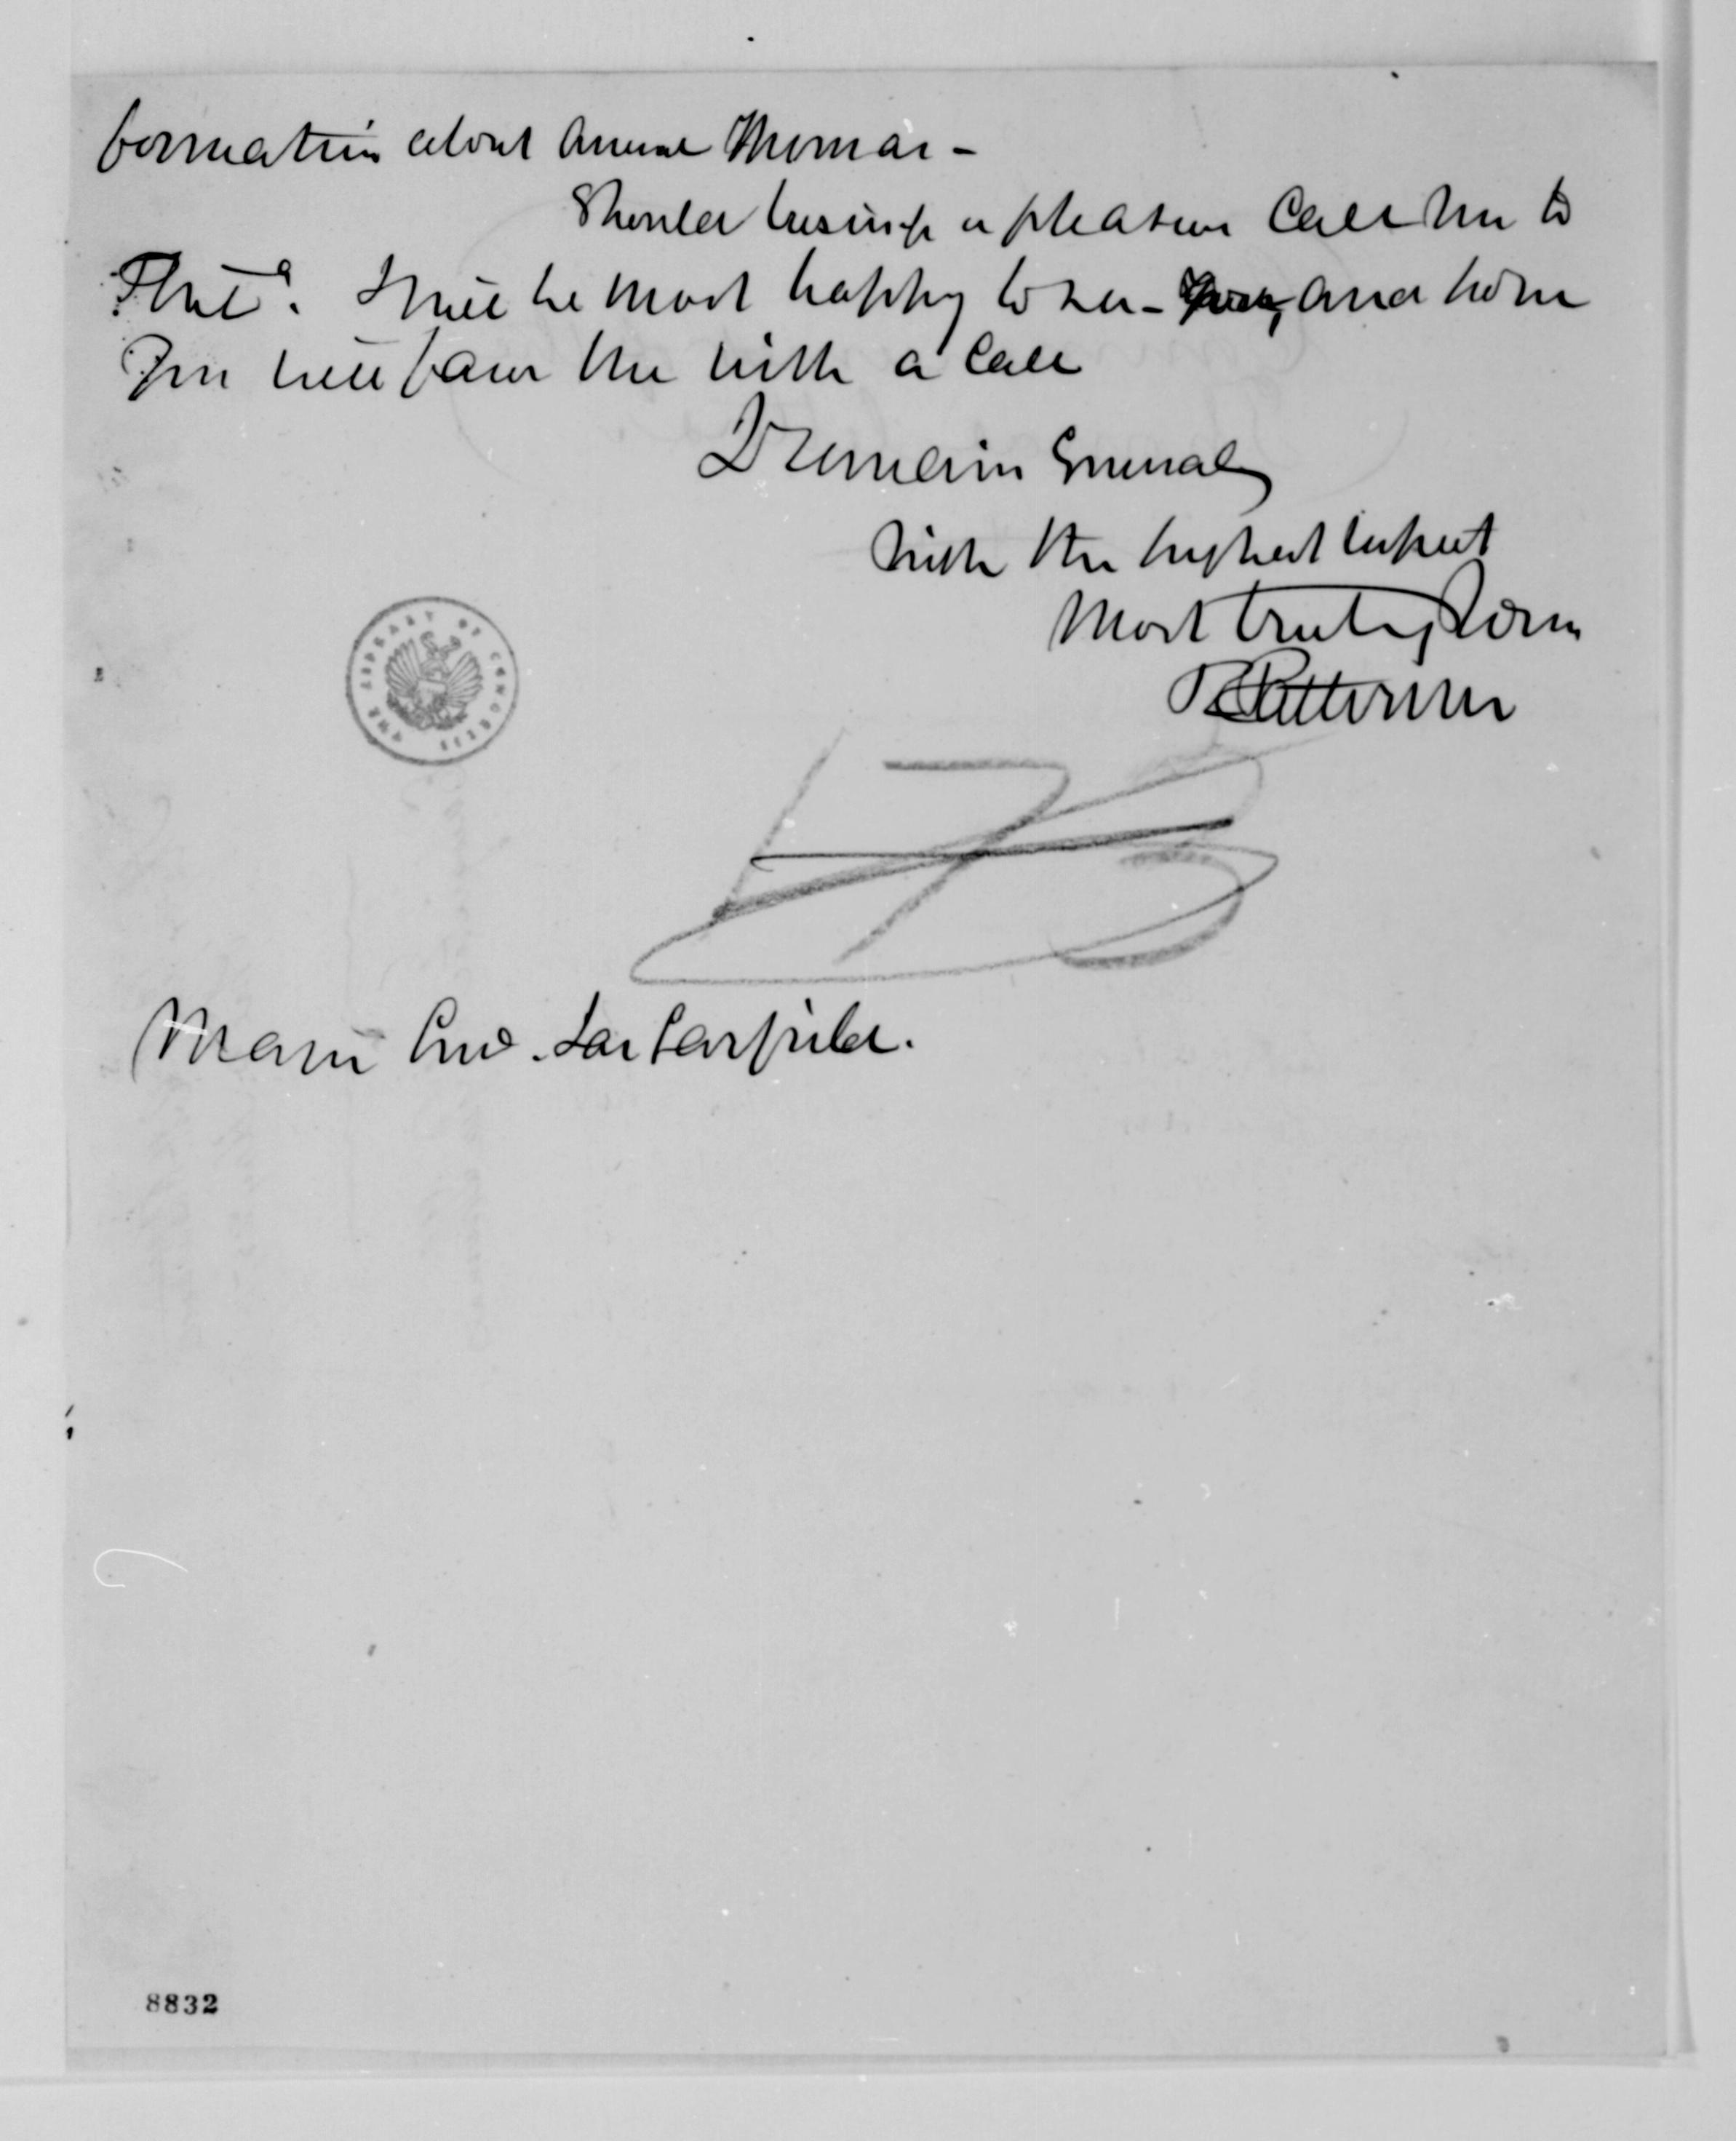 formation about General Thomas –
Should business or pleasure call you to
Phil<sup>a</sup>. I will be most happy to see – you, and hope
you will favor me with a call
I remain General,
with the highest respect
Most truly Yours
R Patterson
THE LIBRARY OF CONGRESS
Major Genl. Jas Garfield.
8832